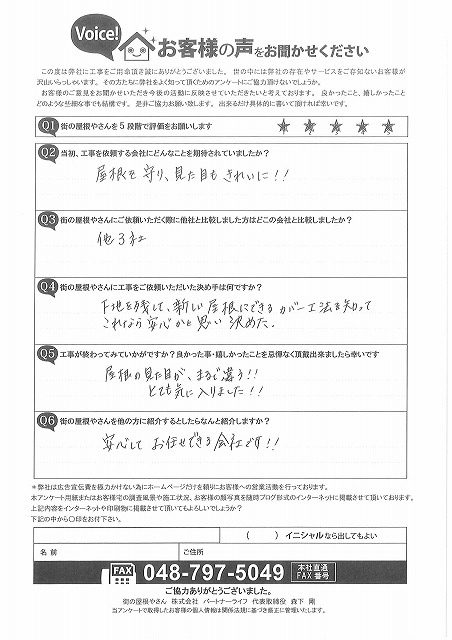 Voice!
お客様の声をお聞かせください
この度は弊社に工事をご用命頂き誠にありがとうございました。世の中には弊社の存在やサービスをご存知ないお客様が
沢山いらっしゃいます。その方たちに弊社をよく知って頂くためのアンケートにご協力頂けないでしょうか。
お客様のご意見をお聞かせいただき今後の活動に反映させていただきたいと考えております。良かったこと、嬉しかったこと
どのような些細な事でも結構です。是非ご協力お願い致します。出来るだけ具体的に書いて頂ければ幸いです。
Q1 街の屋根やさんを5段階で評価をお願いします
Q2 当初、工事を依頼する会社にどんなことを期待されていましたか?
屋根を守り、見た目もきれいに!!
Q3 街の屋根やさんにご依頼いただく際に他社と比較しました方はどこの会社と比較しましたか?
他3社
Q4 街の屋根やさんに工事をご依頼いただいた決め手は何ですか?
下地を残して、新しい屋根にできるカバー工法を知って
これなら安心かと思い決めた.
Q5 工事が終わってみていかがですか?良かった事・嬉しかったことを忌憚なく頂戴出来ましたら幸いです
屋根の見た目が、まるで違う!!
とても気に入りました!!
Q6 街の屋根やさんを他の方に紹介するとしたらなんと紹介しますか?
安心してお任せできる会社です!!
*弊社は広告宣伝費を極力かけない為にホームページだけを頼りにお客様への営業活動を行っております。
本アンケート用紙またはお客様宅の調査風景や施工状況、お客様の顔写真を随時ブログ形式のインターネットに掲載させて頂いております。
上記内容をインターネットや印刷物に掲載させて頂いてもよろしいでしょうか?
下記の中から○印をお付下さい。
( )イニシャルなら出してもよい
名前 ご住所
FAX 048-797-5049 本社直通 FAX番号
ご協力ありがとうございました。
街の屋根やさん 株式会社 パートナーライフ 代表取締役 森下 剛
当アンケートで取得したお客様の個人情報は関係法規に基づき厳正に管理いたします。